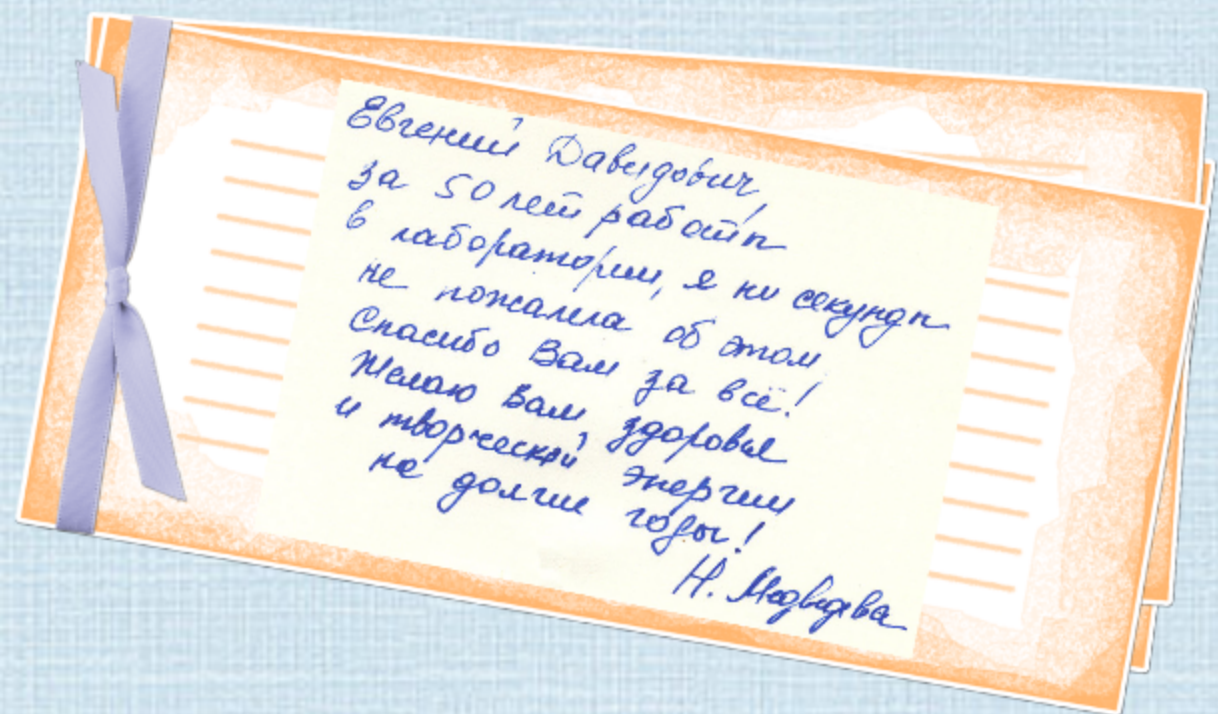 Евгений Давидович,
за 50 лет работы
в лаборатории, я ни секунды
не пожалела об этом.
Спасибо Вам за всё!
Желаю Вам, здоровья
и творческой энергии
на долгие годы!
Н. Медведева